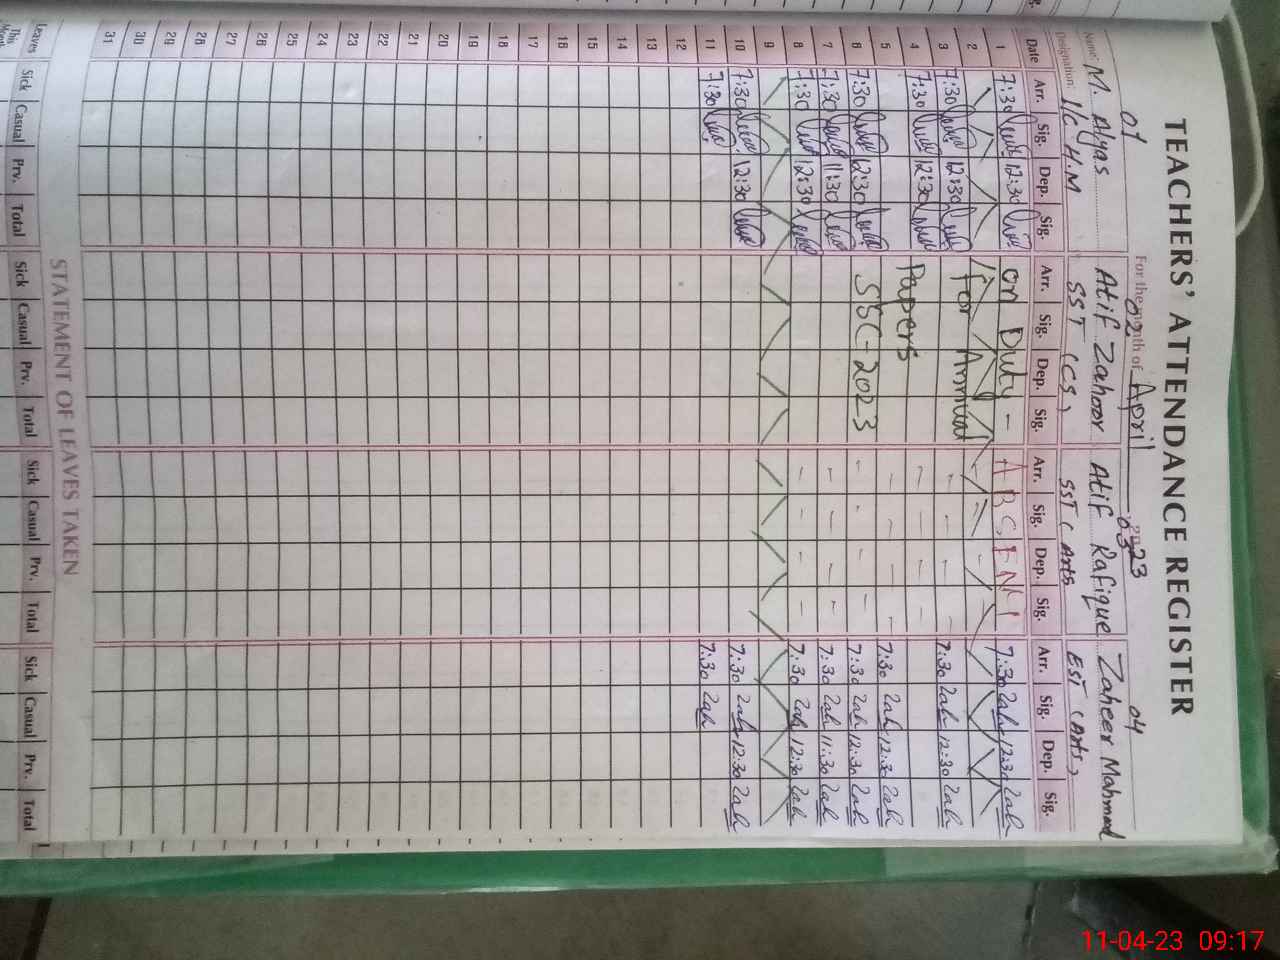 TEACHERS' ATTENDANCE REGISTER
For the month of April 2023
01 02 03 04
Name: M. Alyas Atif Zahoor Atif Rafique Zaheer Mahmood
Designation: I/C H.M SST (CS) SST (Arts EST (Arts)
Date Arr. Sig. Dep. Sig. Arr. Sig. Dep. Sig. Arr. Sig. Dep. Sig. Arr. Sig. Dep. Sig.
1 7:30 12:30 on Duty - ABSENT 7:30 Zah 12:30 Zah
2
3 7:30 12:30 For Annual - - - - 7:30 Zah 12:30 Zah
4 7:30 12:30 Papers - - - -
5 - - - - 7:30 Zah 12:30 Zah
6 7:30 12:30 SSC-2023 - - - - 7:30 Zah 12:30 Zah
7 7:30 11:30 - - - - 7:30 Zah 11:30 Zah
8 7:30 12:30 - - - - 7:30 Zah 12:30 Zah
9
10 7:30 12:30 7:30 Zah 12:30 Zah
11 7:30 7:30 Zah
12
13
14
15
16
17
18
19
20
21
22
23
24
25
26
27
28
29
30
31
STATEMENT OF LEAVES TAKEN
Leaves Sick Casual Prv. Total Sick Casual Prv. Total Sick Casual Prv. Total Sick Casual Prv. Total
This Month
11-04-23 09:17